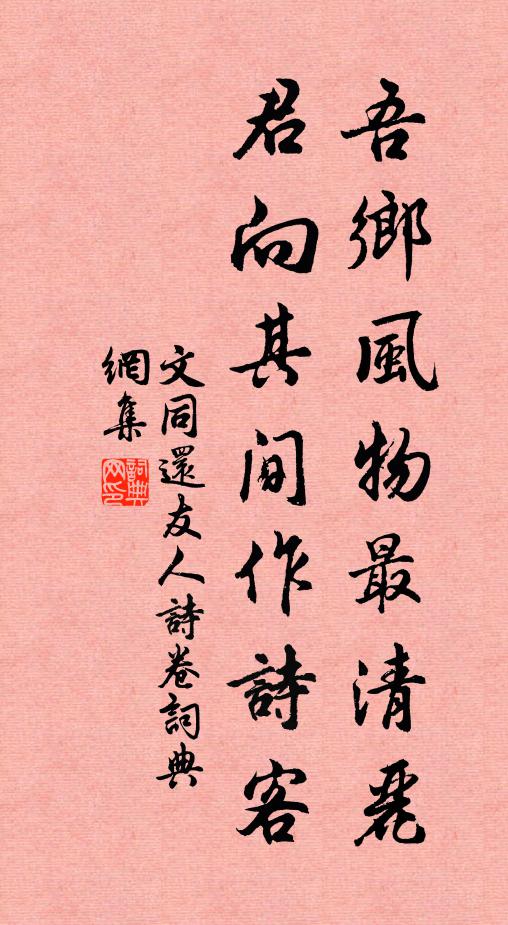 吾鄉風物最清麗
君向其間作詩客
文同還友人詩卷詞典
網集
詞典網印